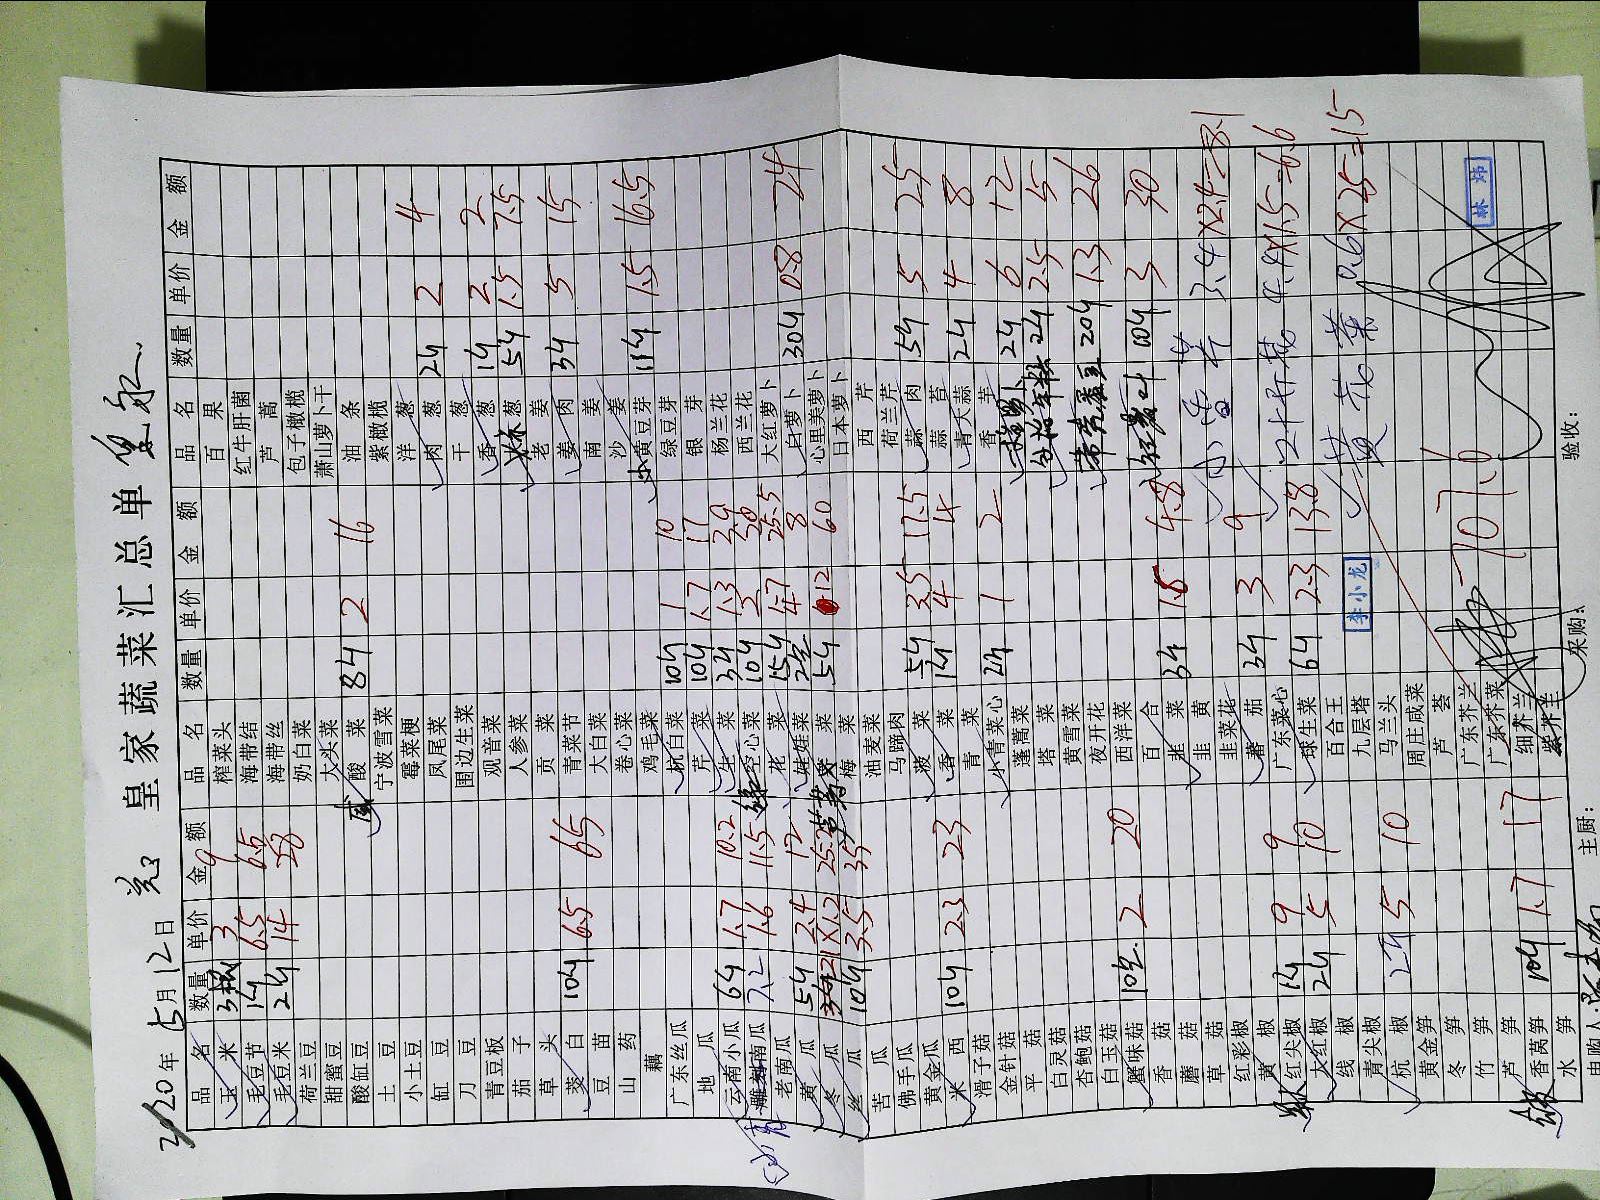 2020年5月12日 皇家蔬菜汇总单
品名 数量 单价 金额 品名 数量 单价 金额 品名 数量 单价 金额
玉米 3 9 榨菜头 百果
毛豆节 1斤 6.5 6.5 海带结 红牛肝菌
毛豆米 2斤 14 28 海带丝 芦蒿
荷兰豆 奶白菜 包子橄榄
甜蜜豆 大头菜 萧山萝卜干
酸缸豆 咸酸菜 8斤 2 16 油条
土豆 宁波雪菜 紫橄榄
小土豆 霉菜梗 洋葱
缸豆 凤尾菜 肉葱 2斤 2 4
刀豆 围边生菜 干葱
青豆板 观音菜 香葱 1斤 2 2
茄子 人参菜 葱 5斤 1.5 7.5
草头 贡菜 老姜
茭白 10斤 6.5 65 青菜节 姜肉 3斤 5 15
豆苗 大白菜 南姜
山药 卷心菜 沙姜
藕 鸡毛菜 小黄豆芽 11斤 1.5 16.5
广东丝瓜 杭白菜 10斤 1 10 绿豆芽
地瓜 芹菜 10斤 1.7 17 银芽
云南小瓜 6斤 1.7 10.2 生菜 3斤 1.3 3.9 杨兰花
南瓜 7.2 1.6 11.5 空心菜 10斤 西兰花
老南瓜 花菜 15斤 1.7 25.5 大红萝卜
黄瓜 5斤 2.4 12 娃娃菜 2 4 8 白萝卜 30斤 0.8 24
冬瓜 21×1.2 25.2 菜 5斤 12 60 心里美萝卜
丝瓜 10斤 3.5 35 梅菜 日本萝卜
苦瓜 油麦菜 西芹
佛手瓜 马蹄肉 荷兰芹
黄金瓜 菠菜 5斤 3.5 17.5 蒜肉 5斤 5 25
米西 10斤 2.3 23 香菜 1斤 4 4 蒜苔
滑子菇 青菜 青大蒜 2斤 4 8
金针菇 小青菜心 2斤 1 2 香芋
平菇 蓬蒿菜 2斤 6 12
白灵菇 塔菜 2斤 2.5 5
杏鲍菇 黄雪菜
白玉菇 夜开花 20斤 1.3 26
蟹味菇 10 2 20 西洋菜
香菇 百合 3 30
蘑菇 韭菜 3斤 4.8
草菇 韭黄 3.4×2.4=8.1
红彩椒 韭菜花
黄椒 蕃茄 3斤 3 9
红尖椒 1斤 9 9 广东菜心 4.4×1.5=6.6
大红椒 2斤 5 10 球生菜 6斤 2.3 13.8
线椒 百合王
青尖椒 九层塔 0.6×25=15
杭椒 2斤 5 10 马兰头
黄金笋 周庄咸菜
冬笋 芦荟
竹笋 广东芥兰
芦笋 广东芥菜 707.6
香莴笋 10斤 1.7 17 细芥兰
水笋 紫洋芋
李小龙
林炜
申购人: 主厨: 采购: 验收: